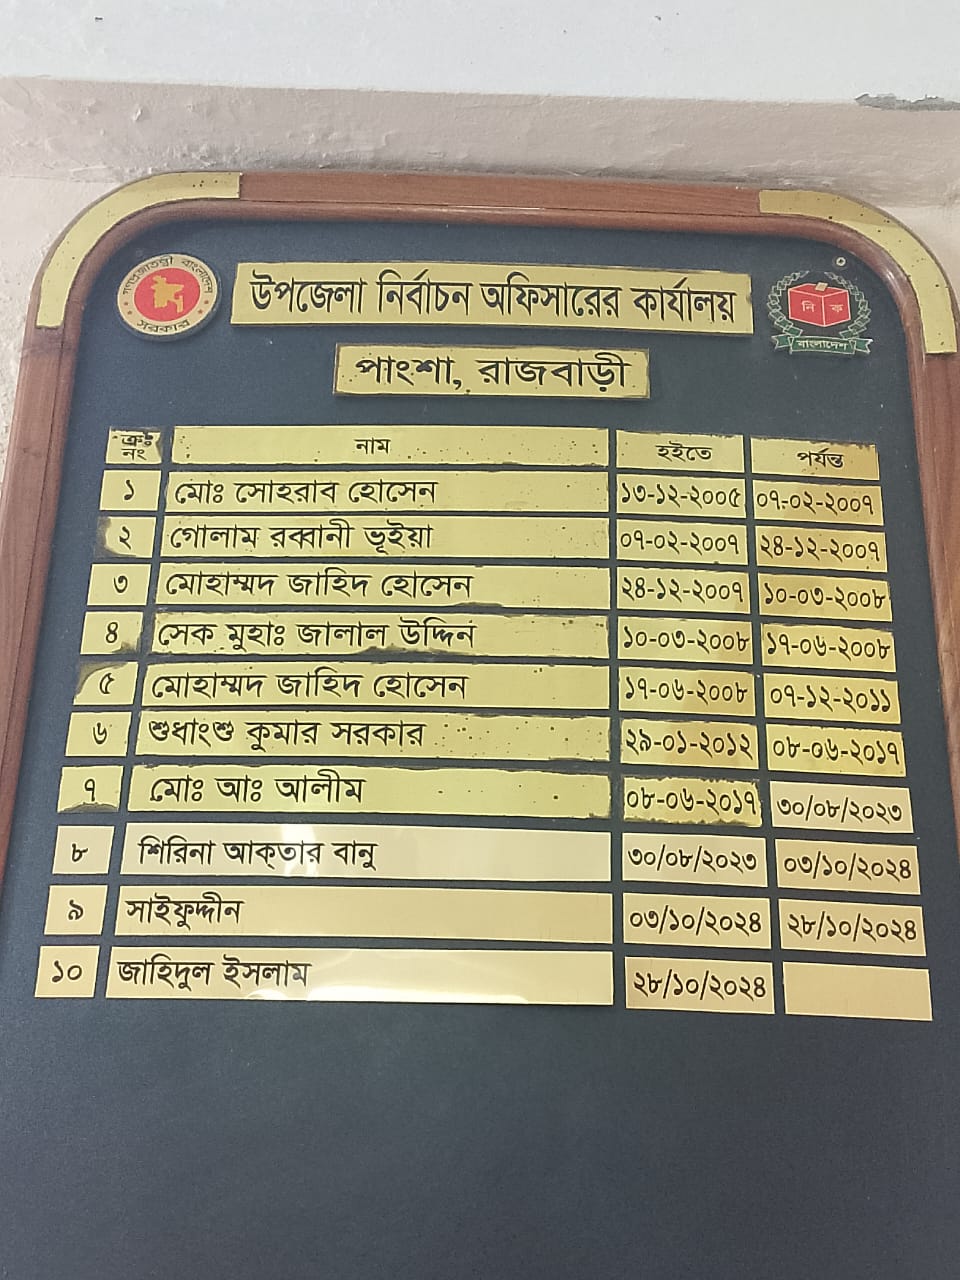 গণপ্রজাতন্ত্রী বাংলাদেশ
সরকার
উপজেলা নির্বাচন অফিসারের কার্যালয়
নি ক
বাংলাদেশ
পাংশা, রাজবাড়ী
ক্রঃ নং নাম হইতে পর্যন্ত
১ মোঃ সোহরাব হোসেন ১৩-১২-২০০৫ ০৭-০২-২০০৭
২ গোলাম রব্বানী ভূইয়া ০৭-০২-২০০৭ ২৪-১২-২০০৭
৩ মোহাম্মদ জাহিদ হোসেন ২৪-১২-২০০৭ ১০-০৩-২০০৮
৪ সেক মুহাঃ জালাল উদ্দিন ১০-০৩-২০০৮ ১৭-০৬-২০০৮
৫ মোহাম্মদ জাহিদ হোসেন ১৭-০৬-২০০৮ ০৭-১২-২০১১
৬ শুধাংশু কুমার সরকার ২৯-০১-২০১২ ০৮-০৬-২০১৭
৭ মোঃ আঃ আলীম ০৮-০৬-২০১৭ ৩০/০৮/২০২৩
৮ শিরিনা আক্‌তার বানু ৩০/০৮/২০২৩ ০৩/১০/২০২৪
৯ সাইফুদ্দীন ০৩/১০/২০২৪ ২৮/১০/২০২৪
১০ জাহিদুল ইসলাম ২৮/১০/২০২৪